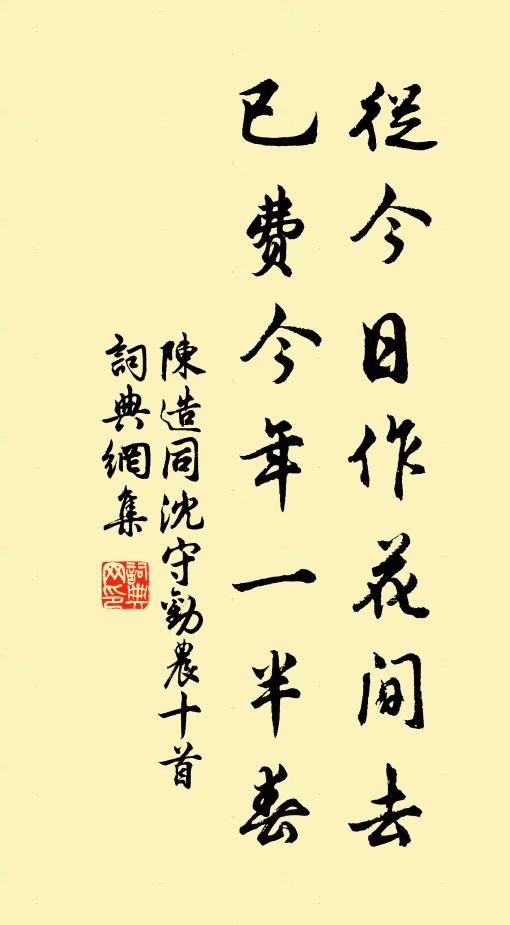 從今日作花間去
已費今年一半春
陳造同沈守勸農十首
詞典網集
詞典网印